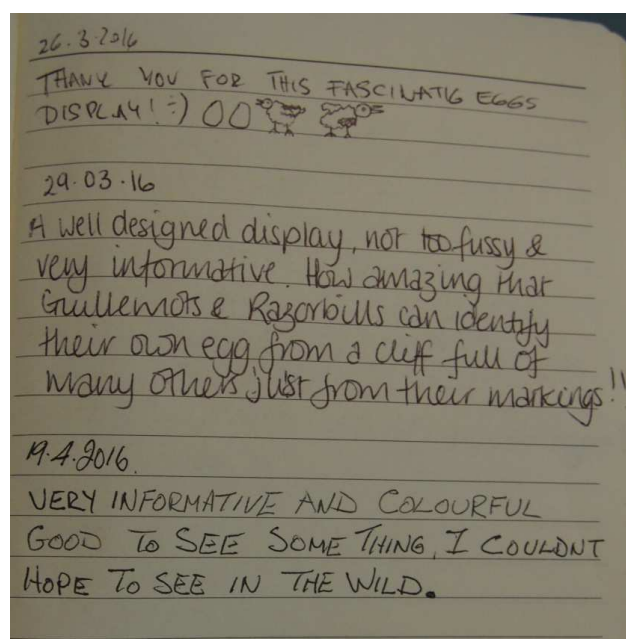 26.3.2016
THANK YOU FOR THIS FASCINATIG EGGS
DISPLAY! :)
29.03.16
A well designed display, not too fussy &
very informative. How amazing that
Guillemots & Razorbills can identify
their own egg from a cliff full of
many others just from their markings!!
19.4.2016.
VERY INFORMATIVE AND COLOURFUL
GOOD TO SEE SOME THING, I COULDNT
HOPE TO SEE IN THE WILD.